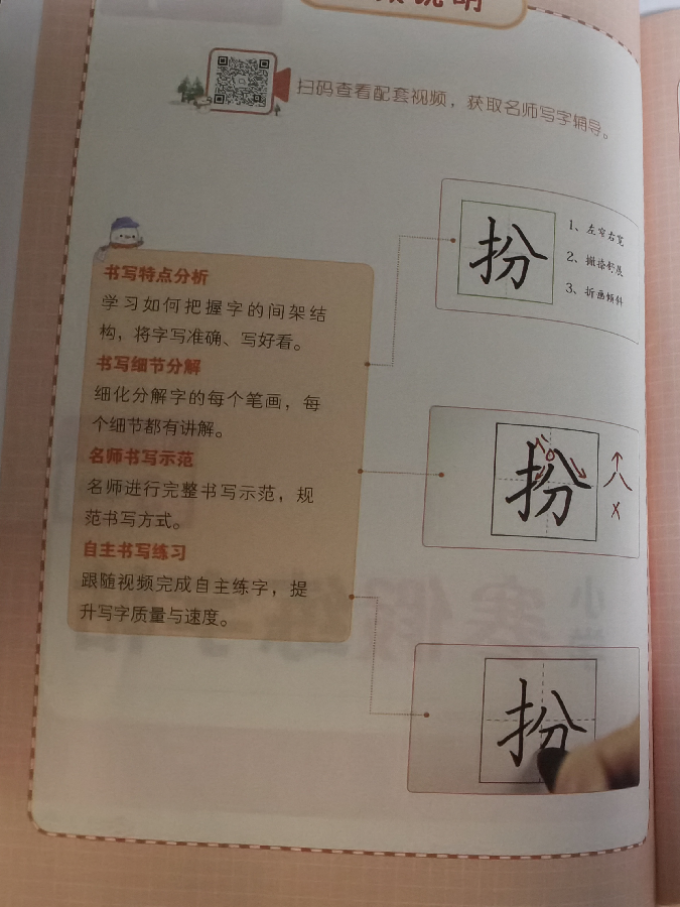 说明
扫码查看配套视频，获取名师写字辅导。
书写特点分析
学习如何把握字的间架结
构，将字写准确、写好看。
书写细节分解
细化分解字的每个笔画，每
个细节都有讲解。
名师书写示范
名师进行完整书写示范，规
范书写方式。
自主书写练习
跟随视频完成自主练字，提
升写字质量与速度。
扮
1、左窄右宽
2、撇捺舒展
3、折画倾斜
扮
八
扮